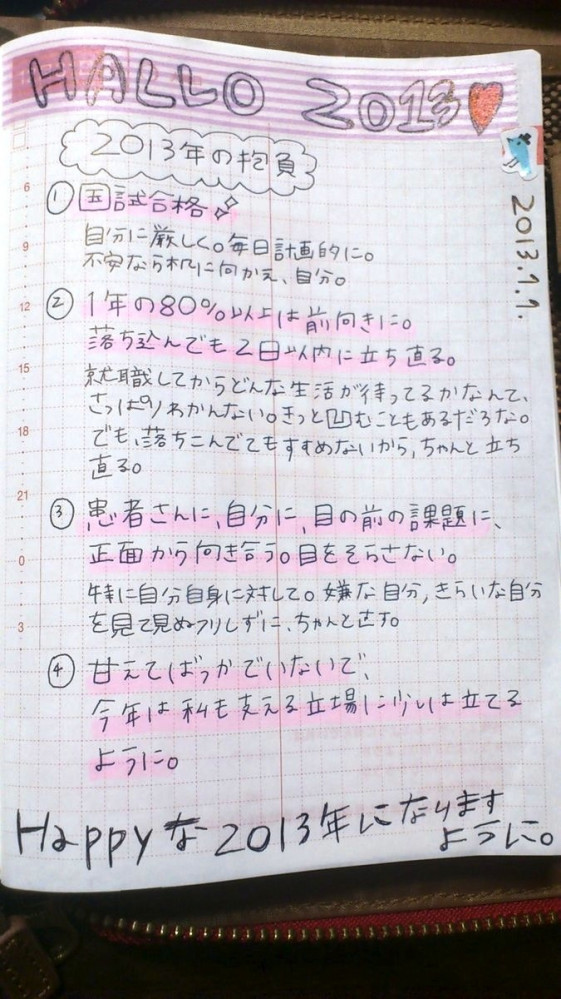 HALLO 2013
2013年の抱負
2013.1.1.
① 国試合格
自分に厳しく。毎日計画的に。
不安なら机に向かえ、自分。
② 1年の80%以上は前向きに。
落ち込んでも2日以内に立ち直る。
就職してからどんな生活が待ってるかなんて、
さっぱりわかんない。きっと凹むこともあるだろな。
でも、落ちこんでてもすすめないから、ちゃんと立ち
直る。
③ 患者さんに、自分に、目の前の課題に、
正面から向き合う。目をそらさない。
特に自分自身に対して。嫌な自分、きらいな自分
を見て見ぬフリしずに、ちゃんと直す。
④ 甘えてばっかでいないで、
今年は私も支える立場に少しは立てる
ように。
Happyな2013年になります
ように。
6
9
12
15
18
21
0
3